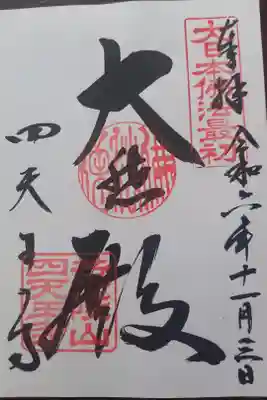 奉拝 令和六年十一月三日
大日本佛法最初
大悲殿
四天王寺
荒陵山
四天王寺